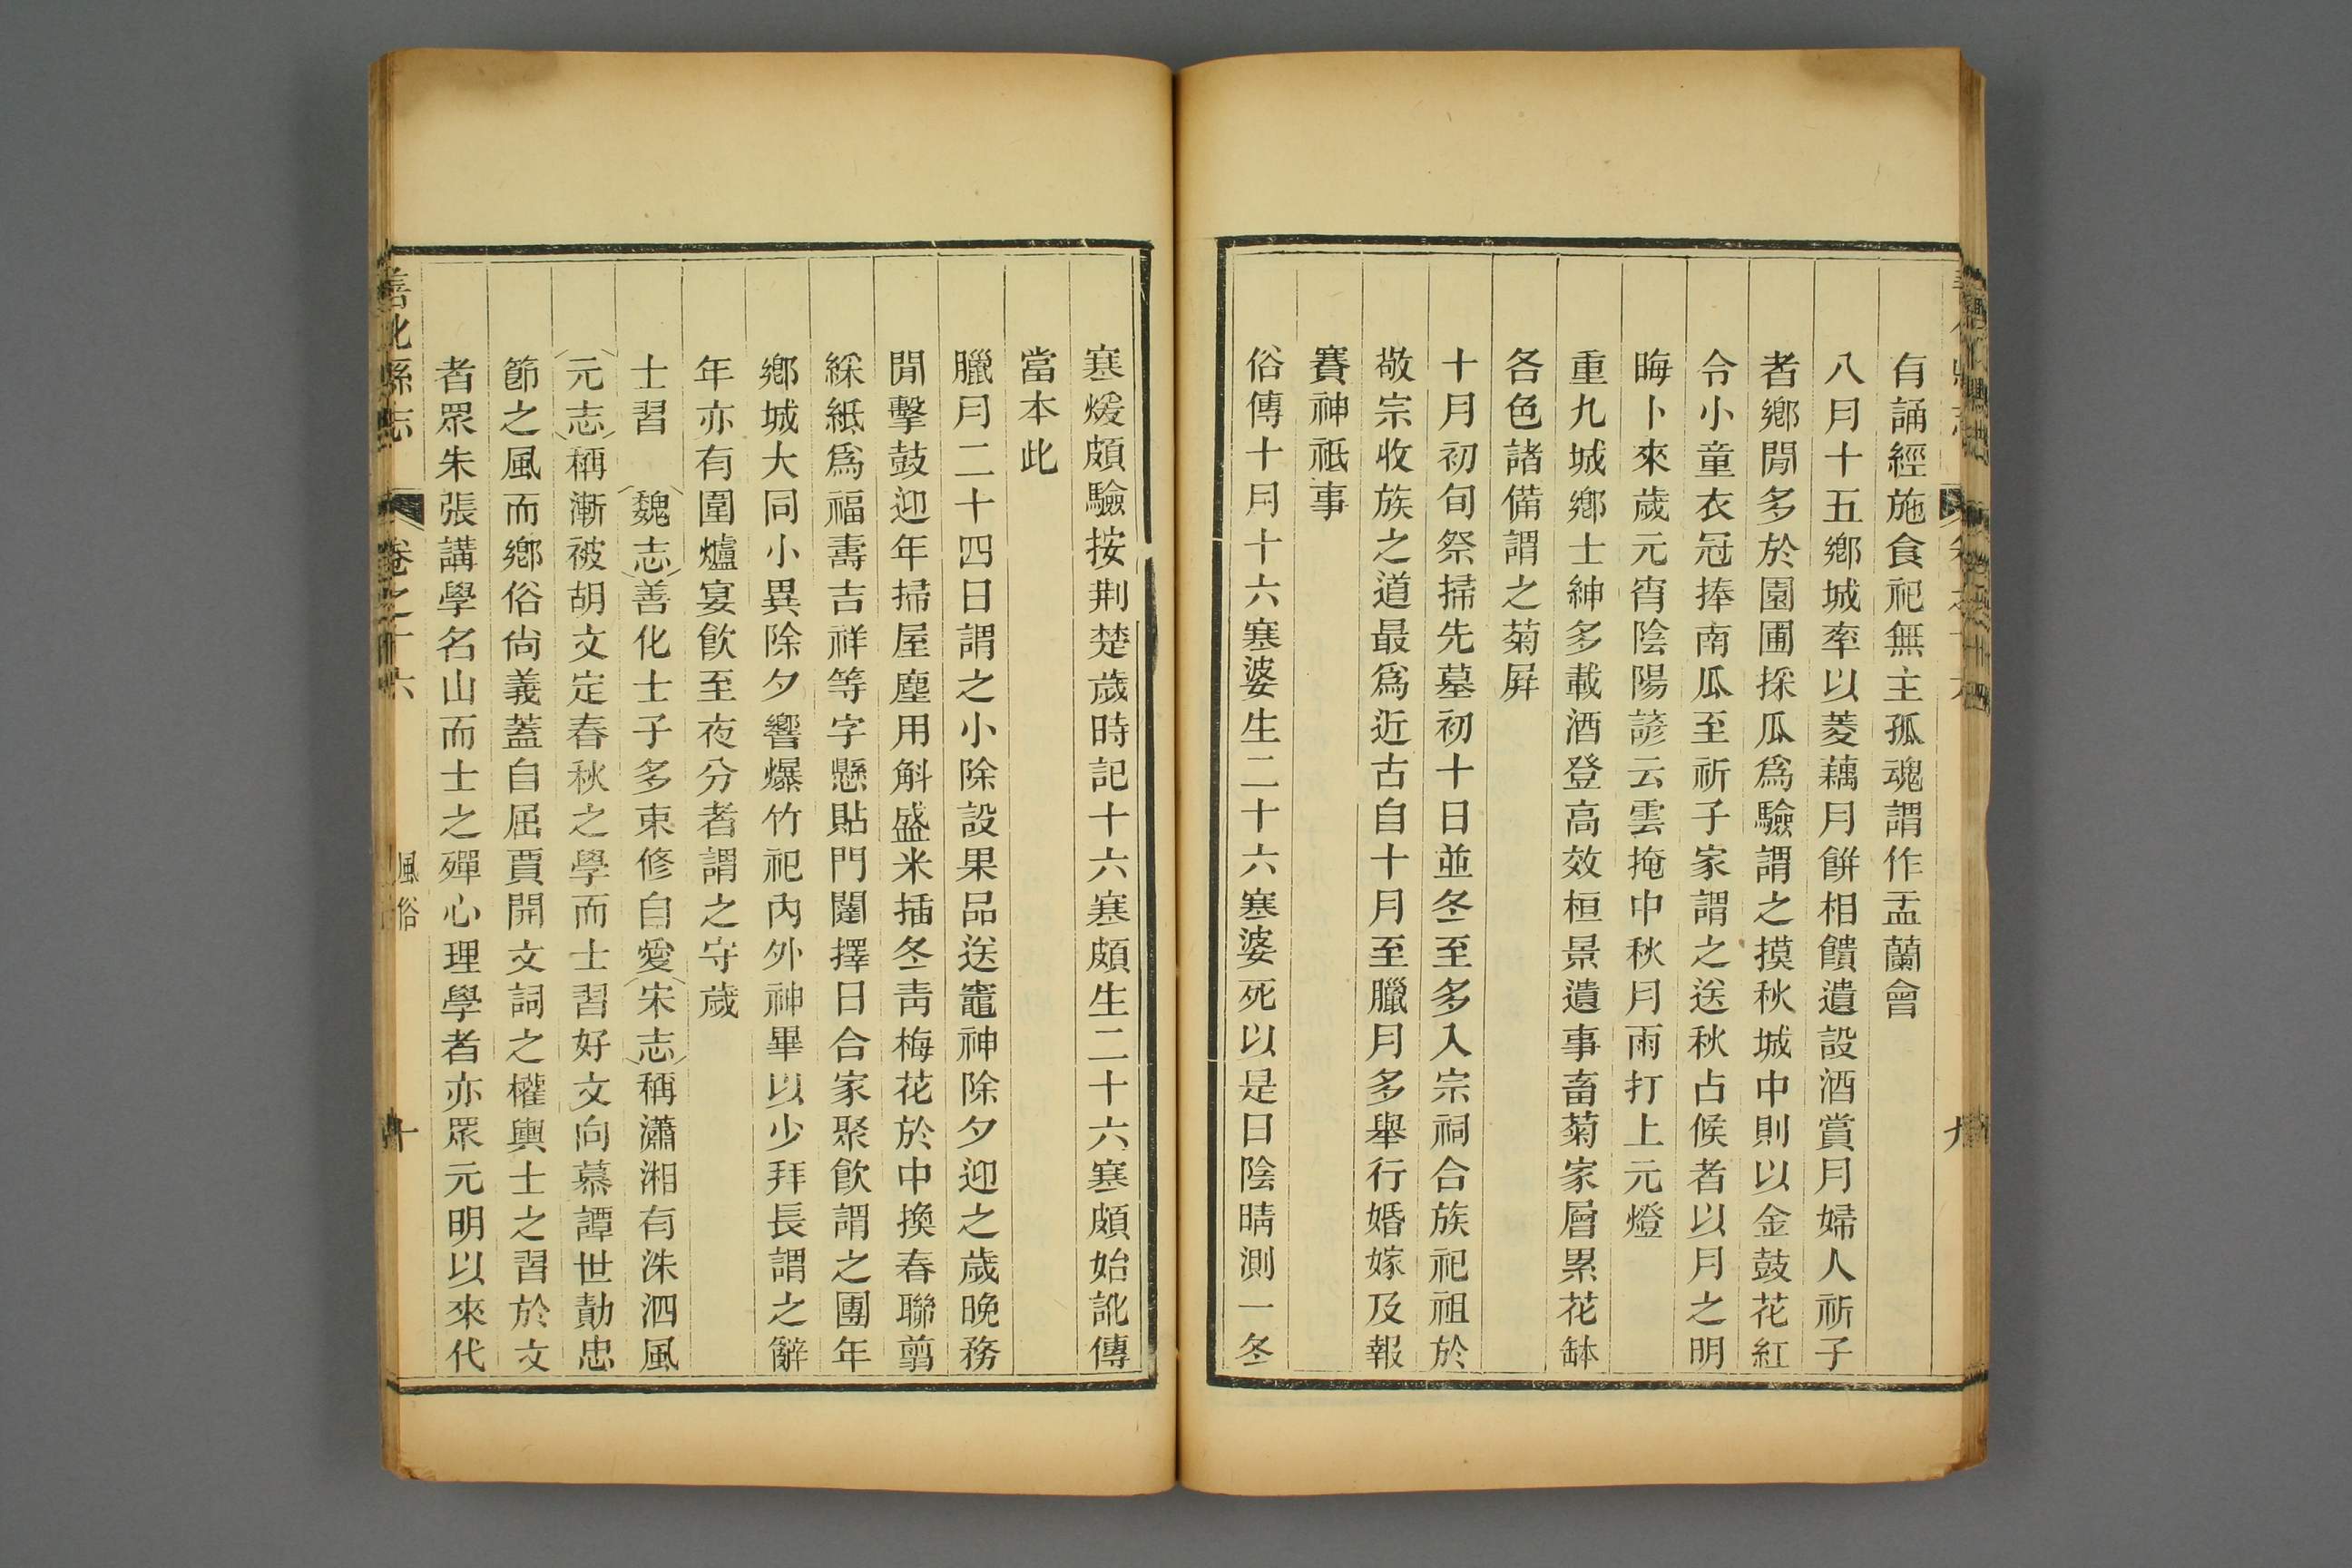 有誦經施食祀無主孤魂謂作盂蘭會
八月十五鄉城率以菱藕月餅相饋遺設酒賞月婦人祈子
者鄉閒多於園圃採瓜爲驗謂之摸秋城中則以金鼓花紅
令小童衣冠捧南瓜至祈子家謂之送秋占候者以月之明
晦卜來歲元宵陰陽諺云雲掩中秋月雨打上元燈
重九城鄉士紳多載酒登高效桓景遺事畜菊家層累花缽
各色諸備謂之菊屛
十月初旬祭掃先墓初十日並冬至多入宗祠合族祀祖於
敬宗收族之道最爲近古自十月至臘月多舉行婚嫁及報
賽神祇事
俗傳十月十六寒婆生二十六寒婆死以是日陰晴測一冬
寒煖頗驗按荆楚歲時記十六寒頗生二十六寒頗始訛傳
當本此
臘月二十四日謂之小除設果品送竈神除夕迎之歲晚務
閒擊鼓迎年掃屋塵用斛盛米插冬靑梅花於中換春聯剪
綵紙爲福壽吉祥等字懸貼門闥擇日合家聚飮謂之團年
鄉城大同小異除夕響爆竹祀內外神畢以少拜長謂之辭
年亦有圍爐宴飮至夜分者謂之守歲
士習　魏志善化士子多束修自愛宋志稱瀟湘有洙泗風
元志稱漸被胡文定春秋之學而士習好文向慕譚世勣忠
節之風而鄉俗尙義蓋自屈賈開文詞之權輿士之習於文
者眾朱張講學名山而士之殫心理學者亦眾元明以來代
善化縣志
卷之十六
風俗
十